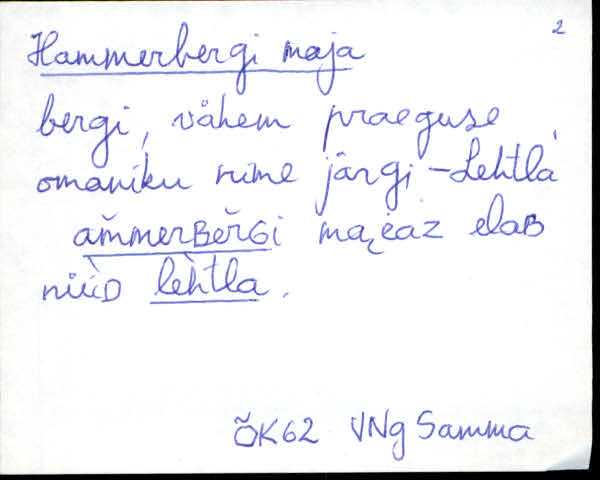 2
Hammerbergi maja
bergi, vähem praeguse
omaniku nime järgi – Lehtla
am̆merBĕrGi mai̯az elaB
nüüD leh̀tla.
ÕK62 VNg Samma